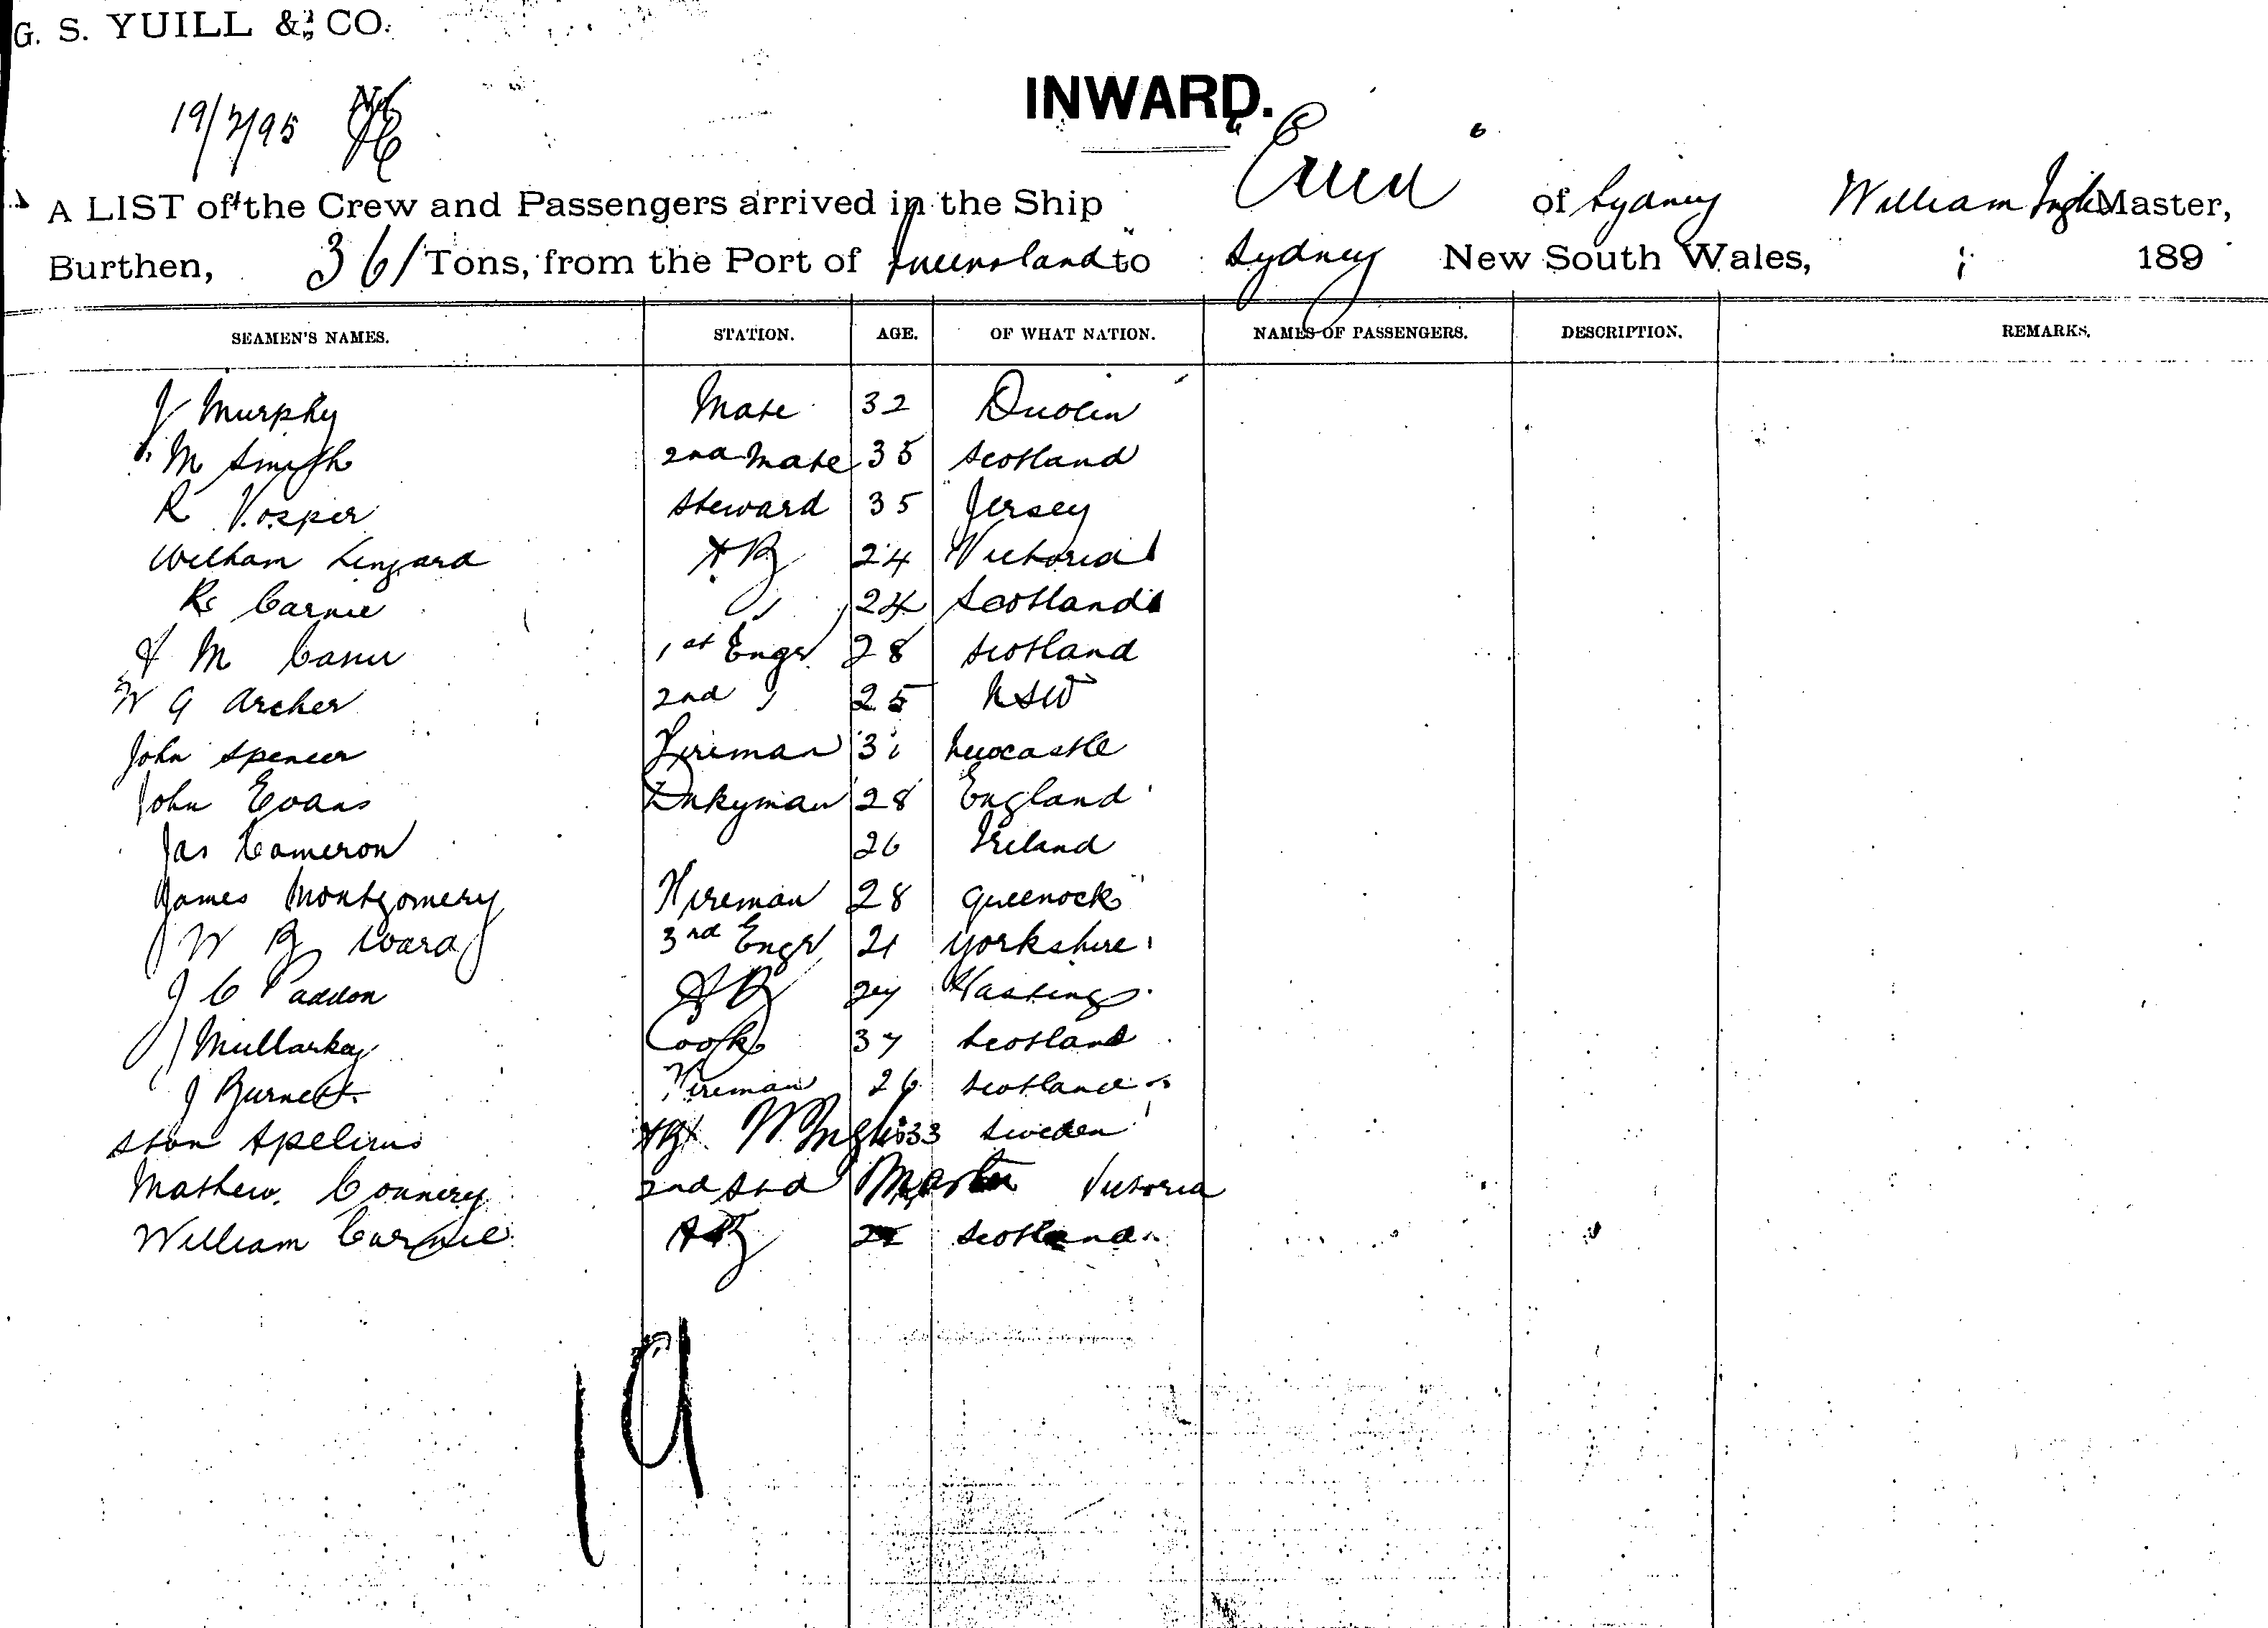 G. S. YUILL & CO.
INWARD.
19/7/95
A LIST of the Crew and Passengers arrived in the Ship of Sydney William Inglis Master,
Burthen, 361 Tons, from the Port of Queensland to Sydney New South Wales, 189
SEAMEN'S NAMES. STATION. AGE. OF WHAT NATION. NAMES OF PASSENGERS. DESCRIPTION. REMARKS.
J Murphy Mate 32 Dublin
M Smith 2nd Mate 35 Scotland
R Vosper Steward 35 Jersey
William Lingard AB 24 Victoria
R Carnie " 24 Scotland
M 1st Engr 28 Scotland
W G Archer 2nd " 25 NSW
John Spencer Fireman 31 Newcastle
John Evans Dnkyman 28 England
Jas Cameron 26 Ireland
James Montgomery Fireman 28 Greenock
W B Ward 3rd Engr 21 Yorkshire
J C Paddon AB 24 Hastings
J Mullarkey Cook 37 Scotland
J Burnett Fireman 26 Scotland
AB W Inglis 33 Sweden
Mathew Connery 2nd Std Master Victoria
William Carnie AB Scotland
19